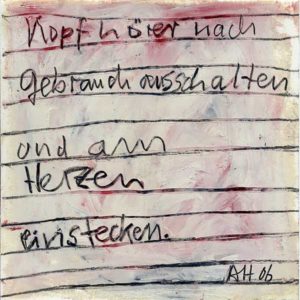 Kopfhörer nach
gebrauch ausschalten
und am
Herzen
einstecken.
AH 06